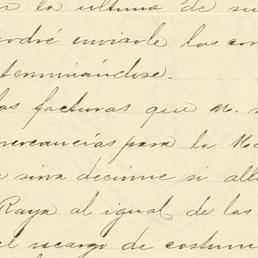 la ultima de su
podré enviarle las con
terminándose.
las facturas que m.
mercancías para la Ha
sirva decirme si all
Raya al igual de las
el recargo de costum